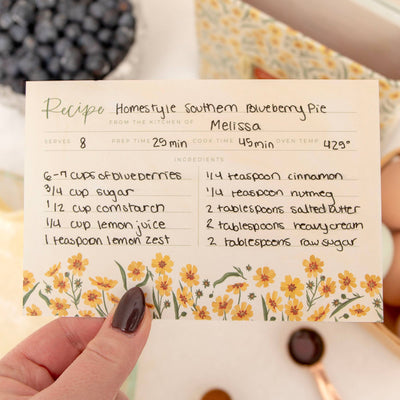 Recipe Homestyle Southern Blueberry Pie
FROM THE KITCHEN OF Melissa
SERVES 8 PREP TIME 25min COOK TIME 45min OVEN TEMP 425°
INGREDIENTS
6-7 cups of blueberries
3/4 cup sugar
1/2 cup cornstarch
1/4 cup lemon juice
1 teaspoon lemon zest
1/4 teaspoon cinnamon
1/4 teaspoon nutmeg
2 tablespoons salted butter
2 tablespoons heavy cream
2 tablespoons raw sugar